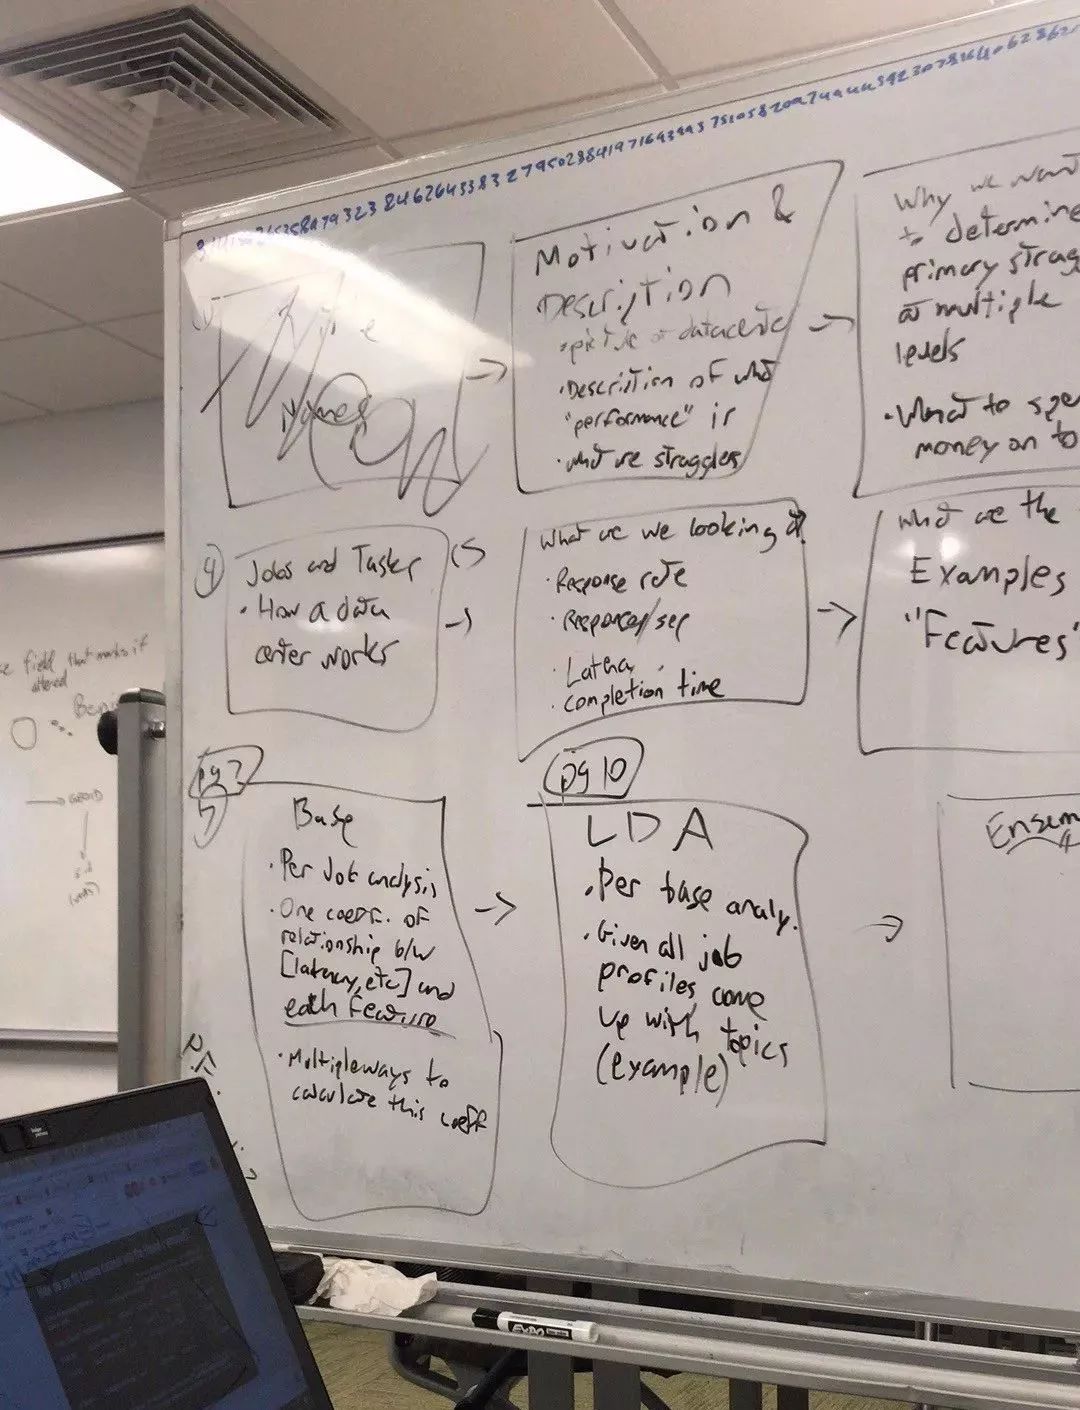 79323846264338327950288419716939937510582097494459230781640628620
Title
Names
Motivation &
Description
• picture of datacenter
• Description of what
"performance" is
• what are struggles
Why we want
to determine
primary
at multiple
levels
• What to
money on to
4
Jobs and Tasks
• How a data
center works
What are we looking at
• Response rate
• Response/sec
• Latency
• completion time
What are the
Examples
"Features"
pg 7
Base
• Per Job analysis
• One coeff. of
relationship b/w
[latency, etc] and
each feature
• Multiple ways to
calculate this coeff
pg 10
LDA
• Per base analy.
• Given all job
profiles, come
up with topics
(example)
field that marks if
altered
EXPO